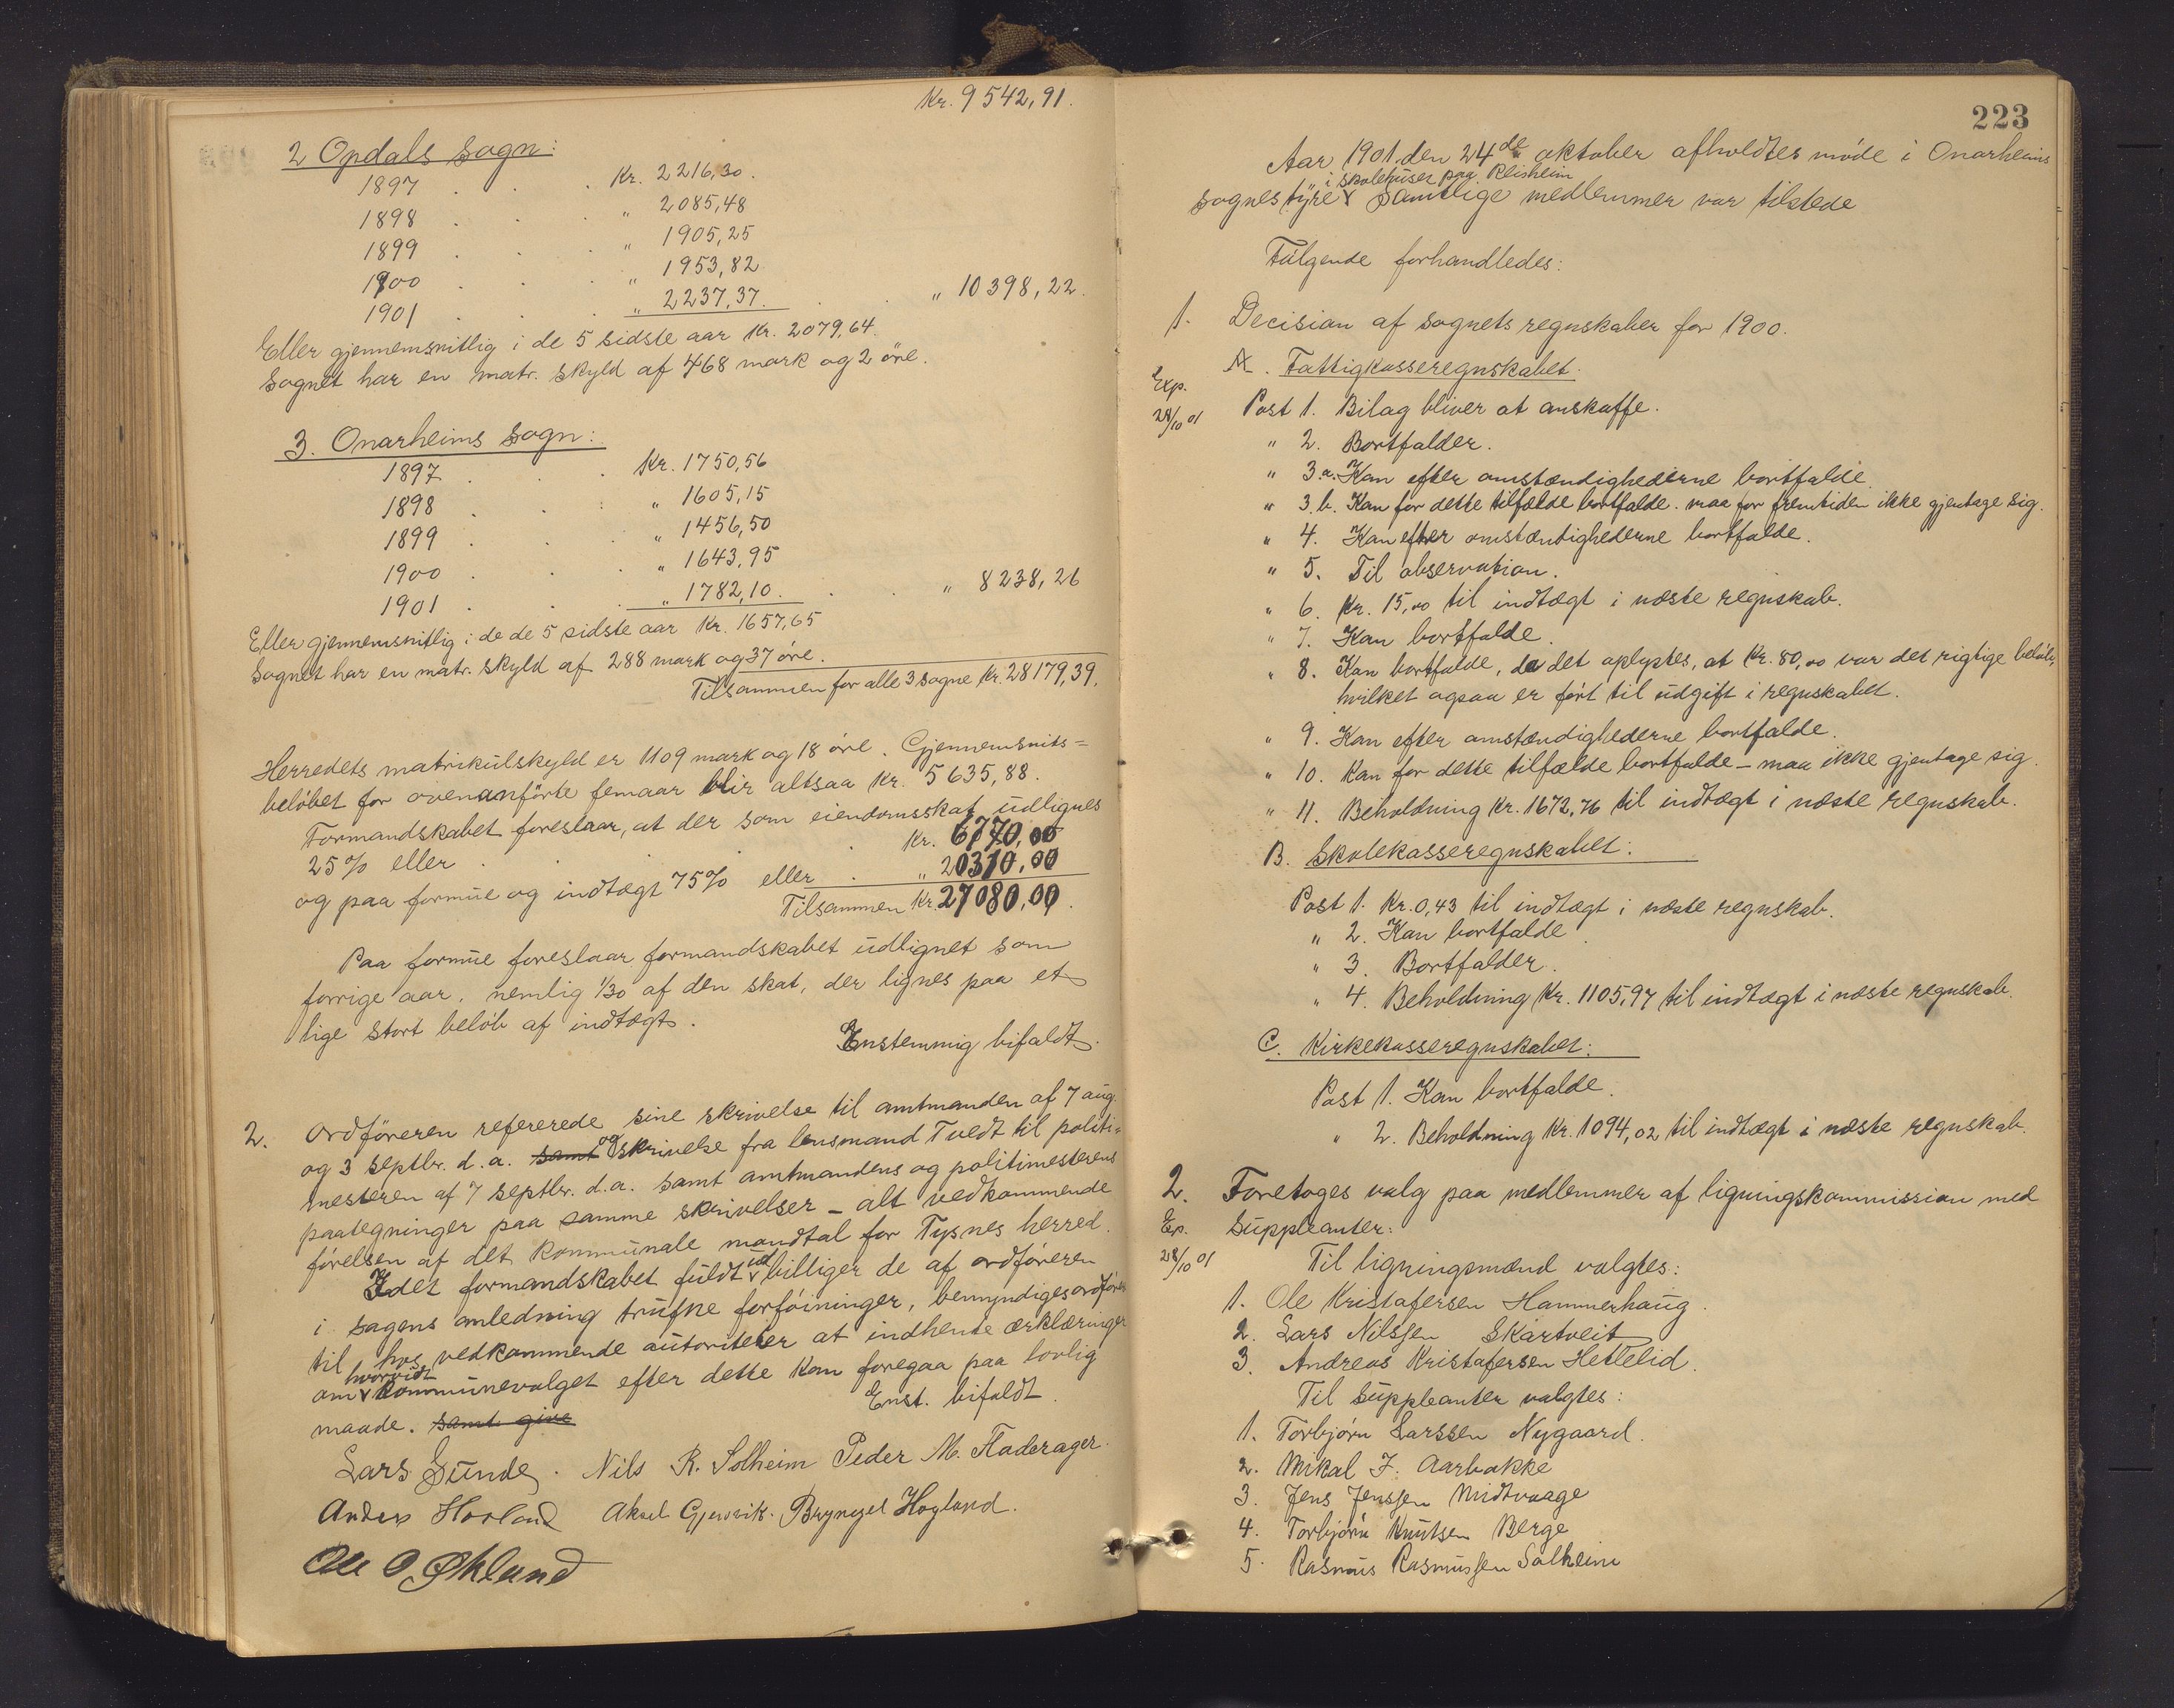 Kr. 9542,91.
2 Opdals sogn:
1897 . . . Kr. 2216,30.
1898 . . . " 2085,48
1899 . . . " 1905,25
1900 . . . " 1953,82
1901 . . . " 2237,37. . . " 10398,22.
Eller gjennemsnitlig i de 5 sidste aar Kr. 2079,64.
Sognet har en matr. skyld af 468 mark og 2 øre.
3. Onarheims sogn:
1897 . . . Kr. 1750,56
1898 . . . " 1605,15
1899 . . . " 1456,50
1900 . . . " 1643,95
1901 . . . " 1782,10. . . " 8238,26
Eller gjennemsnitlig i de de 5 sidste aar Kr. 1657,65
Sognet har en matr. skyld af 288 mark og 37 øre.
Tilsammen for alle 3 sogne Kr. 28179,39.
Herredets matrikulskyld er 1109 mark og 18 øre. Gjennemsnits=
beløbet for ovenanførte femaar blir altsaa Kr. 5635,88.
Formandskabet foreslaar, at der som eiendomsskat udlignes
25% eller . . . Kr. 6770,00
og paa formue og indtægt 75% eller . " 20310,00
Tilsammen Kr. 27080,00.
Paa formue foreslaar formandskabet udlignet som
forrige aar, nemlig 1/30 af den skat, der lignes paa et
lige stort beløb af indtægt.
Enstemmig bifaldt.
2. Ordføreren refererede sine skrivelse til amtmanden af 7 aug.
og 3 septbr. d.a. samt og skrivelse fra lensmand Tvedt til politi=
mesteren af 7 septbr. d.a. samt amtmandens og politimesterens
paategninger paa samme skrivelser – alt vedkommende
førelsen af det kommunale mandtal for Tysnes herred.
Idet formandskabet fuldt ud billiger de af ordføreren
i sagens anledning trufne forføininger, bemyndiges ordføreren
til hos vedkommende autoriteter at indhente erklæringer
om hvorvidt kommunevalget efter dette kan foregaa paa lovlig
maade. samt give Enst. bifaldt.
Lars Sunde. Nils R. Solheim Peder M. Fladerager.
Anders Horland Aksel Gjersvik. Brynjel Hogland.
Ole O. Økland
223
Aar 1901 den 24de oktober afholdtes møde i Onarheims
sognestyre i skolehuset paa Reisheim samtlige medlemmer var tilstede
Følgende forhandledes:
1. Decision af sognets regnskaber for 1900.
A. Fattigkasseregnskabet.
Exp.
28/10 01
Post 1. Bilag bliver at anskaffe.
" 2. Bortfalder.
" 3.a. Kan efter omstændighederne bortfalde.
" 3.b. Kan for dette tilfælde bortfalde. maa for fremtiden ikke gjentage sig.
" 4. Kan efter omstændighederne bortfalde.
" 5. Til observation.
" 6. Kr. 15,00 til indtægt i næste regnskab.
" 7. Kan bortfalde.
" 8. Kan bortfalde, da det oplystes, at Kr. 80,00 var det rigtige beløb,
hvilket ogsaa er ført til udgift i regnskabet.
" 9. Kan efter omstændighederne bortfalde.
" 10. Kan for dette tilfælde bortfalde – maa ikke gjentage sig.
" 11. Beholdning Kr. 1672,76 til indtægt i næste regnskab.
B. Skolekasseregnskabet:
Post 1. Kr. 0,43 til indtægt i næste regnskab.
" 2. Kan bortfalde.
" 3. Bortfalder.
" 4. Beholdning Kr. 1105,97 til indtægt i næste regnskab.
C. Kirkekasseregnskabet:
Post 1. Kan bortfalde.
" 2. Beholdning Kr. 1094,02 til indtægt i næste regnskab.
2. Foretoges valg paa medlemmer af ligningskommission med
Ep. suppleanter:
28/10 01 Til ligningsmænd valgtes:
1. Ole Kristofersen Hammerhaug.
2. Lars Nilssen Skartveit
3. Andreas Kristofersen Hettelid.
Til suppleanter valgtes:
1. Torbjørn Larssen Nygaard.
2. Mikal J. Aarbakke
3. Jens Jenssen Midtvaage
4. Torbjørn Knutsen Berge
5. Rasmus Rasmussen Solheim